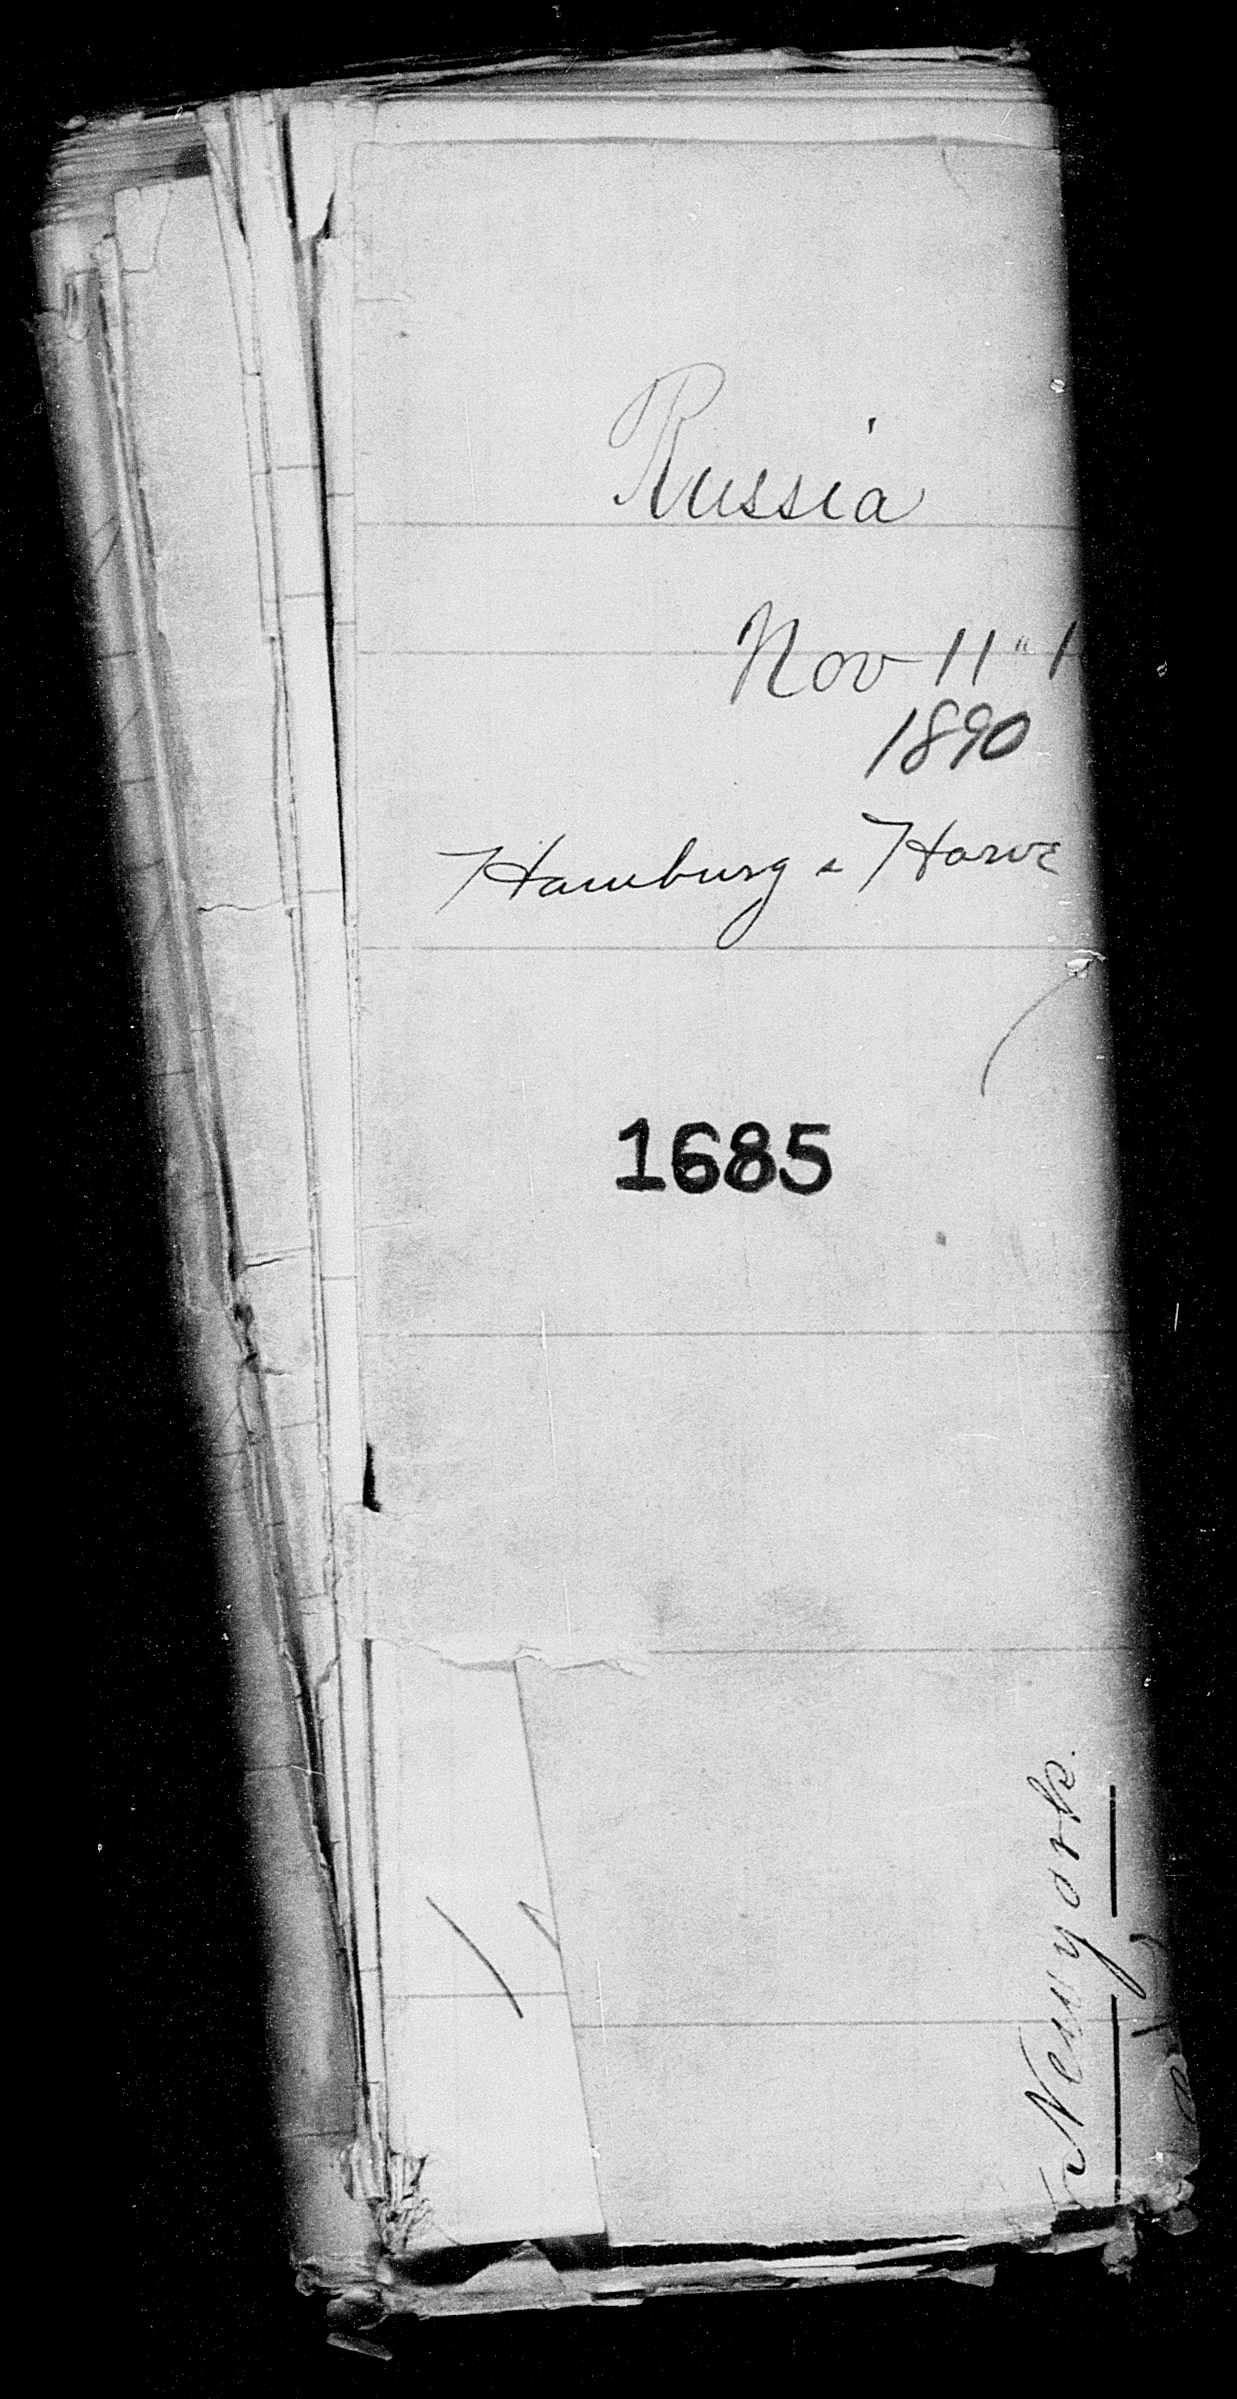 Russia
Nov 11"
1890
Hamburg & Havre
1685
New york.